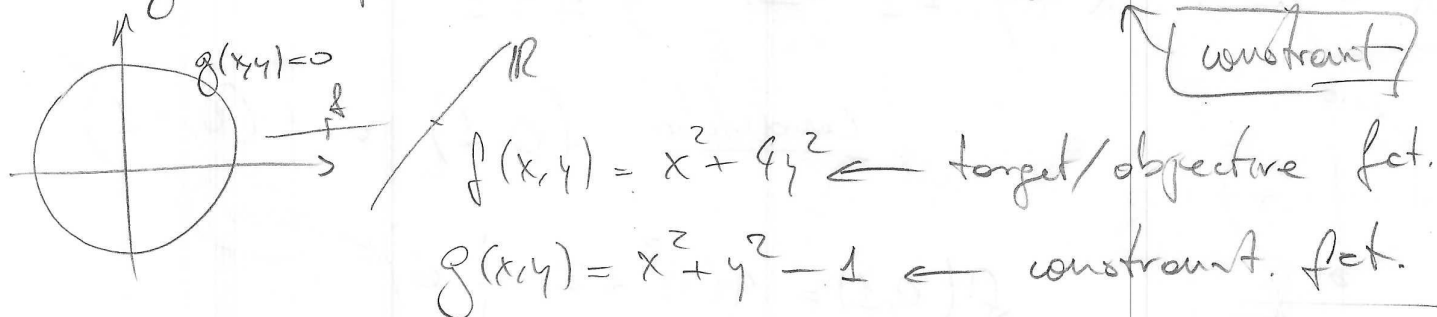 constraint
g(x,y)=0
f
ℝ
f(x,y) = x² + 4y² ← target/objective fct.
g(x,y) = x² + y² - 1 ← constraint. fct.